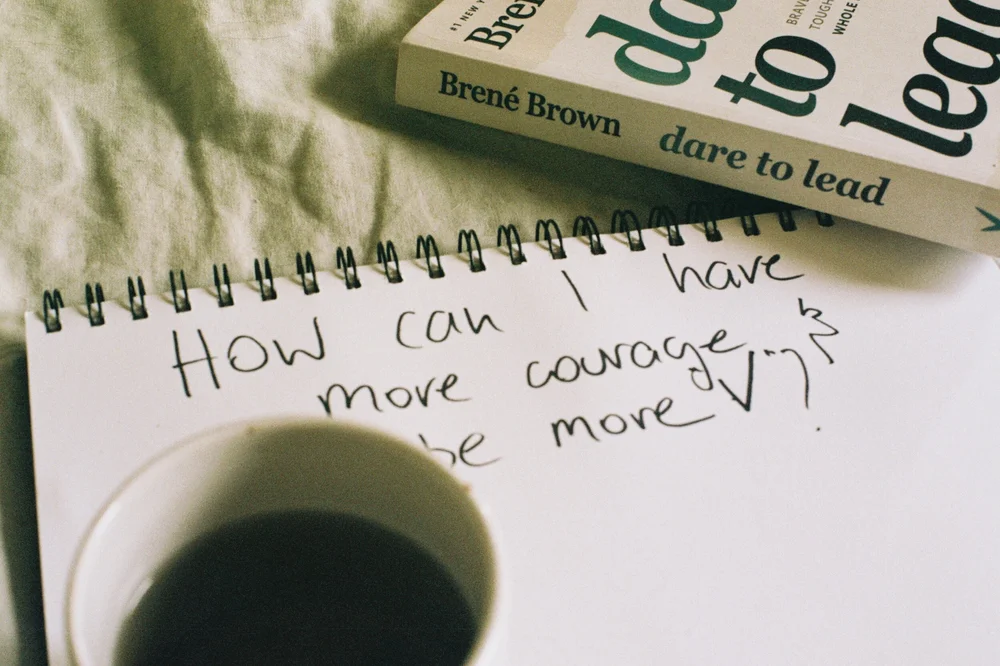 #1 NEW Y
Bren
da
to
lead
BRAV
TOUGH
WHOLE
Brené Brown
dare to lead
How can I have
more courage
be more